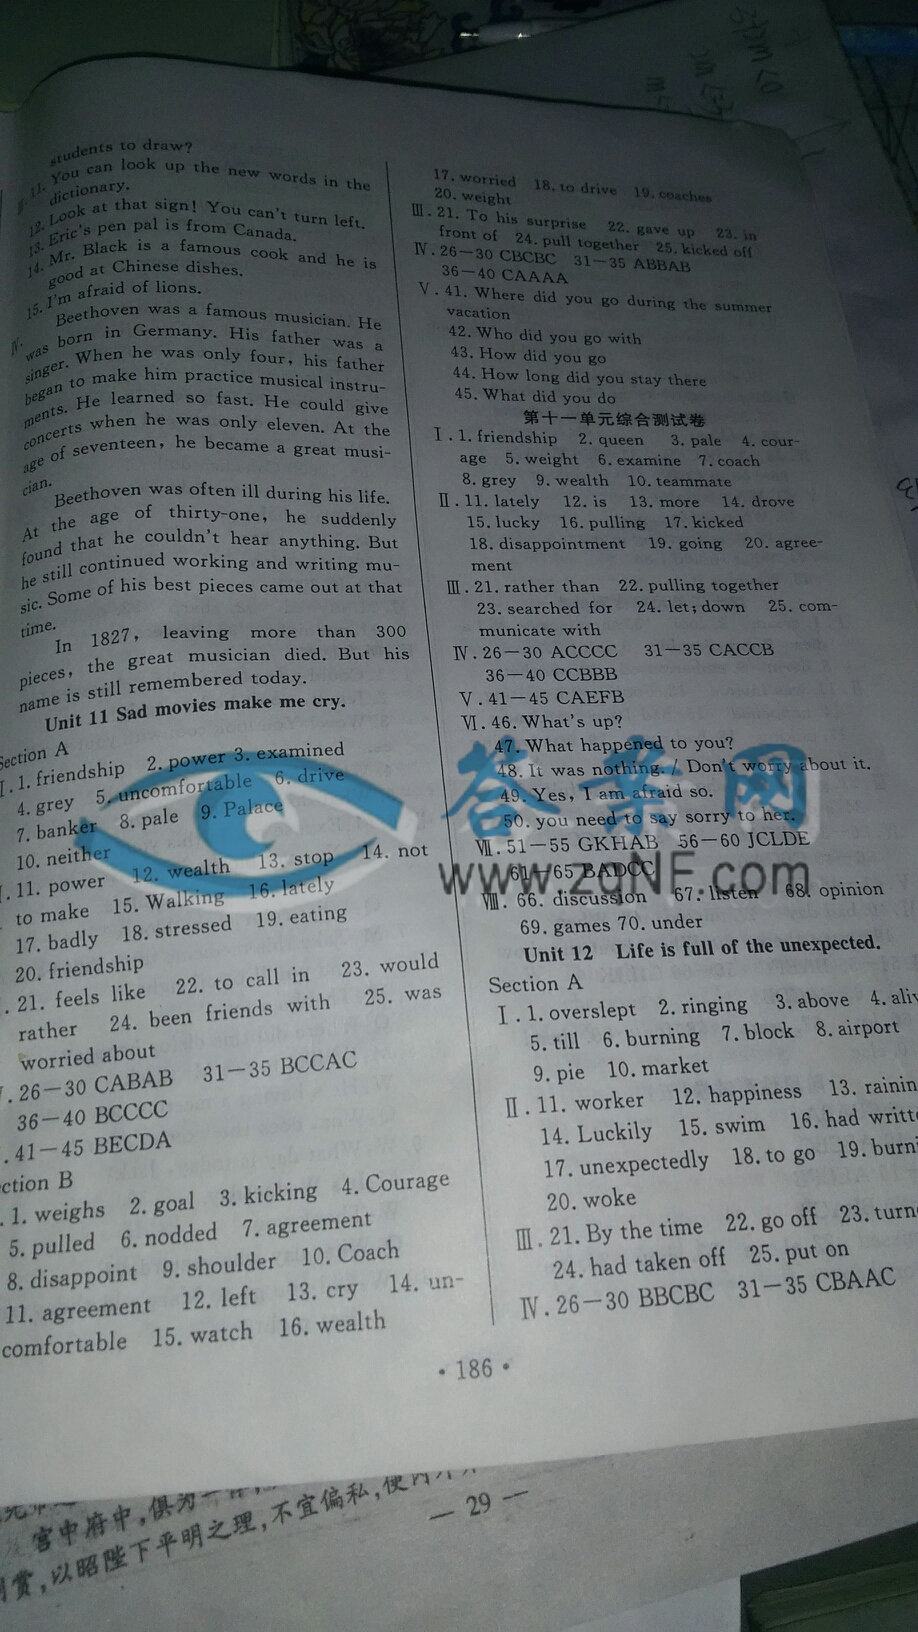 students to draw?
Ⅲ. 11. You can look up the new words in the
dictionary.
12. Look at that sign! You can't turn left.
13. Eric's pen pal is from Canada.
14. Mr. Black is a famous cook and he is
good at Chinese dishes.
15. I'm afraid of lions.
Ⅳ. Beethoven was a famous musician. He
was born in Germany. His father was a
singer. When he was only four, his father
began to make him practice musical instru-
ments. He learned so fast. He could give
concerts when he was only eleven. At the
age of seventeen, he became a great musi-
cian.
Beethoven was often ill during his life.
At the age of thirty-one, he suddenly
found that he couldn't hear anything. But
he still continued working and writing mu-
sic. Some of his best pieces came out at that
time.
In 1827, leaving more than 300
pieces, the great musician died. But his
name is still remembered today.
Unit 11 Sad movies make me cry.
Section A
Ⅰ. 1. friendship 2. power 3. examined
4. grey 5. uncomfortable 6. drive
7. banker 8. pale 9. Palace
10. neither
. 11. power 12. wealth 13. stop 14. not
to make 15. Walking 16. lately
17. badly 18. stressed 19. eating
20. friendship
. 21. feels like 22. to call in 23. would
rather 24. been friends with 25. was
worried about
. 26—30 CABAB 31—35 BCCAC
36—40 BCCCC
. 41—45 BECDA
ction B
. 1. weighs 2. goal 3. kicking 4. Courage
5. pulled 6. nodded 7. agreement
8. disappoint 9. shoulder 10. Coach
11. agreement 12. left 13. cry 14. un-
comfortable 15. watch 16. wealth
17. worried 18. to drive 19. coaches
20. weight
Ⅲ. 21. To his surprise 22. gave up 23. in
front of 24. pull together 25. kicked off
Ⅳ. 26—30 CBCBC 31—35 ABBAB
36—40 CAAAA
Ⅴ. 41. Where did you go during the summer
vacation
42. Who did you go with
43. How did you go
44. How long did you stay there
45. What did you do
第十一单元综合测试卷
Ⅰ. 1. friendship 2. queen 3. pale 4. cour-
age 5. weight 6. examine 7. coach
8. grey 9. wealth 10. teammate
Ⅱ. 11. lately 12. is 13. more 14. drove
15. lucky 16. pulling 17. kicked
18. disappointment 19. going 20. agree-
ment
Ⅲ. 21. rather than 22. pulling together
23. searched for 24. let; down 25. com-
municate with
Ⅳ. 26—30 ACCCC 31—35 CACCB
36—40 CCBBB
Ⅴ. 41—45 CAEFB
Ⅵ. 46. What's up?
47. What happened to you?
48. It was nothing. / Don't worry about it.
49. Yes, I am afraid so.
50. you need to say sorry to her.
Ⅶ. 51—55 GKHAB 56—60 JCLDE
61—65 BADCC
Ⅷ. 66. discussion 67. listen 68. opinion
69. games 70. under
Unit 12 Life is full of the unexpected.
Section A
Ⅰ. 1. overslept 2. ringing 3. above 4. aliv
5. till 6. burning 7. block 8. airport
9. pie 10. market
Ⅱ. 11. worker 12. happiness 13. rainin
14. Luckily 15. swim 16. had writte
17. unexpectedly 18. to go 19. burni
20. woke
Ⅲ. 21. By the time 22. go off 23. turne
24. had taken off 25. put on
Ⅳ. 26—30 BBCBC 31—35 CBAAC
· 186 ·
答案网
www.zqNF.com
宫中府中,俱为一
赏,以昭陛下平明之理,不宜偏私,使内外
— 29 —